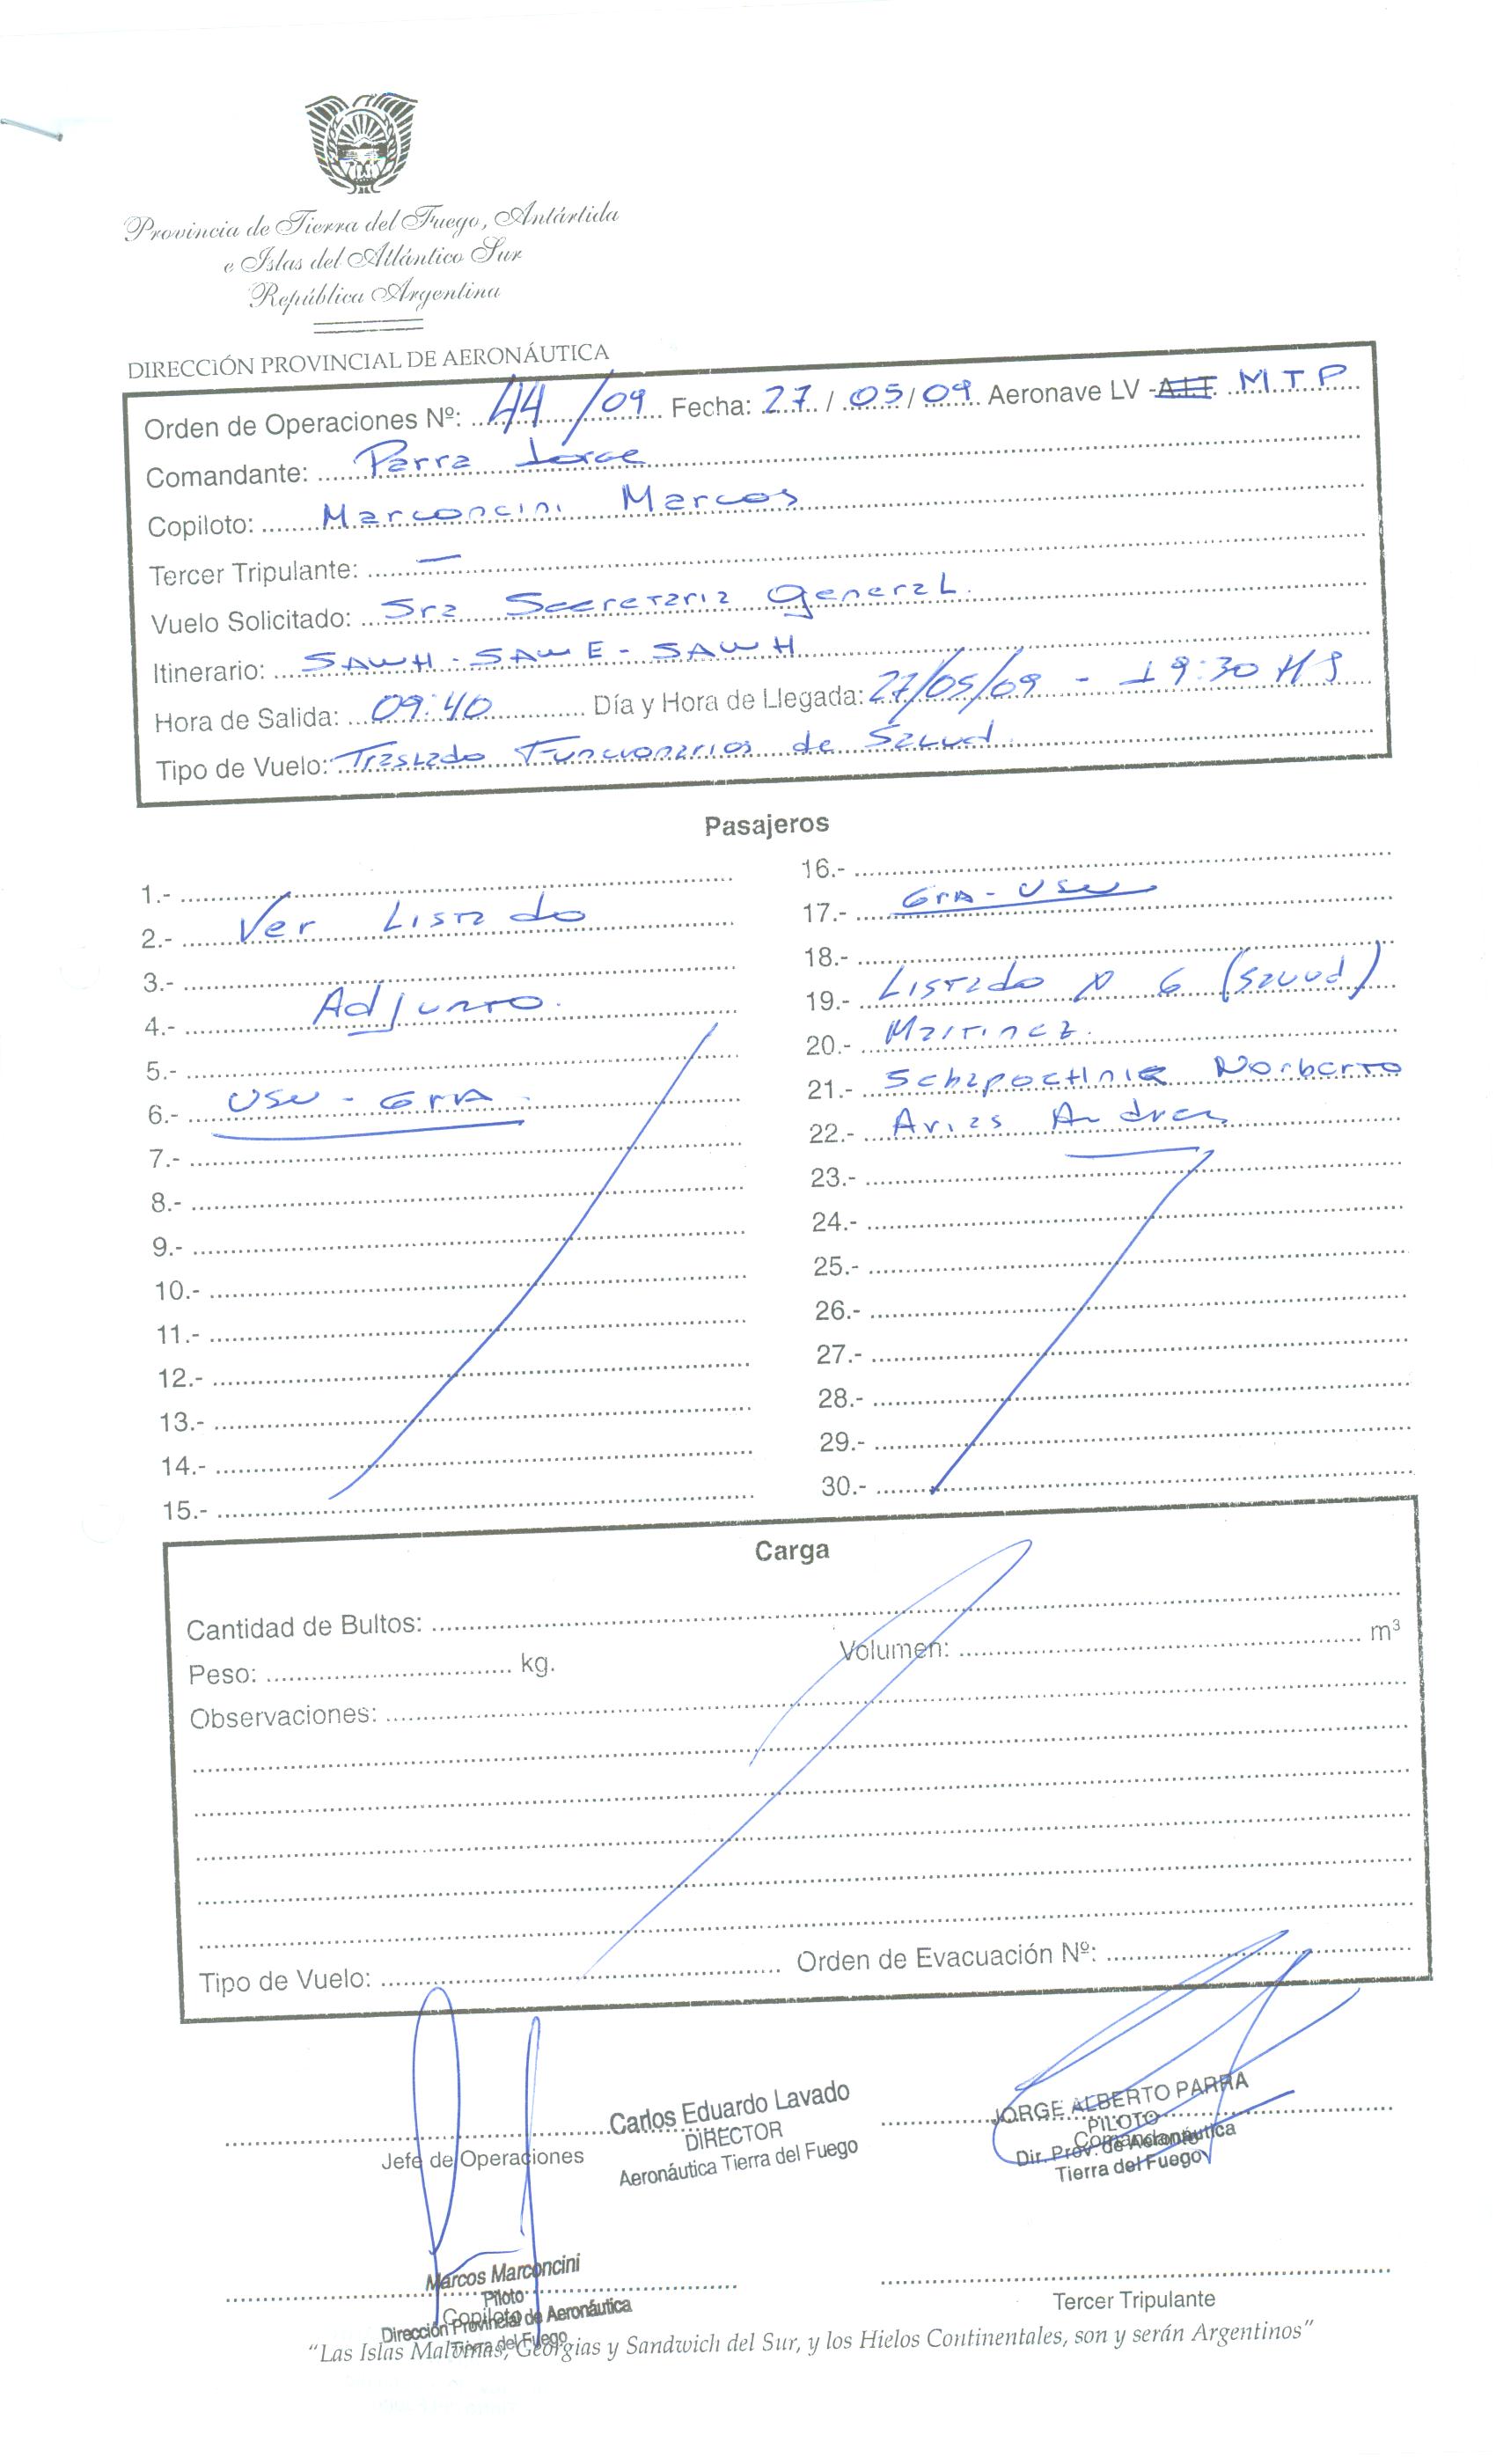 Provincia de Tierra del Fuego, Antártida
e Islas del Atlántico Sur
República Argentina
DIRECCIÓN PROVINCIAL DE AERONÁUTICA
Orden de Operaciones Nº: 44/09 Fecha: 27/05/09 Aeronave LV - A.I.T. MTP
Comandante: Parra Jorge
Copiloto: Marconcini Marcos
Tercer Tripulante: —
Vuelo Solicitado: Sra Secretaria General
Itinerario: SAWH - SAWE - SAWH
Hora de Salida: 09:40 Día y Hora de Llegada: 27/05/09 - 19:30 HS
Tipo de Vuelo: Traslado Funcionarios de Salud
Pasajeros
1.-
2.- Ver Listado
3.-
4.- Adjunto.
5.-
6.- USU - GRA
7.-
8.-
9.-
10.-
11.-
12.-
13.-
14.-
15.-
16.-
17.- GRA - USU
18.-
19.- Listado N 6 (Salud)
20.- Martinez
21.- Schapochnik Norberto
22.- Arias Andres
23.-
24.-
25.-
26.-
27.-
28.-
29.-
30.-
Carga
Cantidad de Bultos:
Peso: kg. Volumen: m³
Observaciones:
Tipo de Vuelo: Orden de Evacuación Nº:
Jefe de Operaciones
Carlos Eduardo Lavado
DIRECTOR
Aeronáutica Tierra del Fuego
JORGE ALBERTO PARRA
PILOTO
Comandante
Dir. Prov. de Aeronáutica
Tierra del Fuego
Marcos Marconcini
Piloto
Copiloto
Dirección Provincial de Aeronáutica
Tierra del Fuego
Tercer Tripulante
“Las Islas Malvinas, Georgias y Sandwich del Sur, y los Hielos Continentales, son y serán Argentinos”